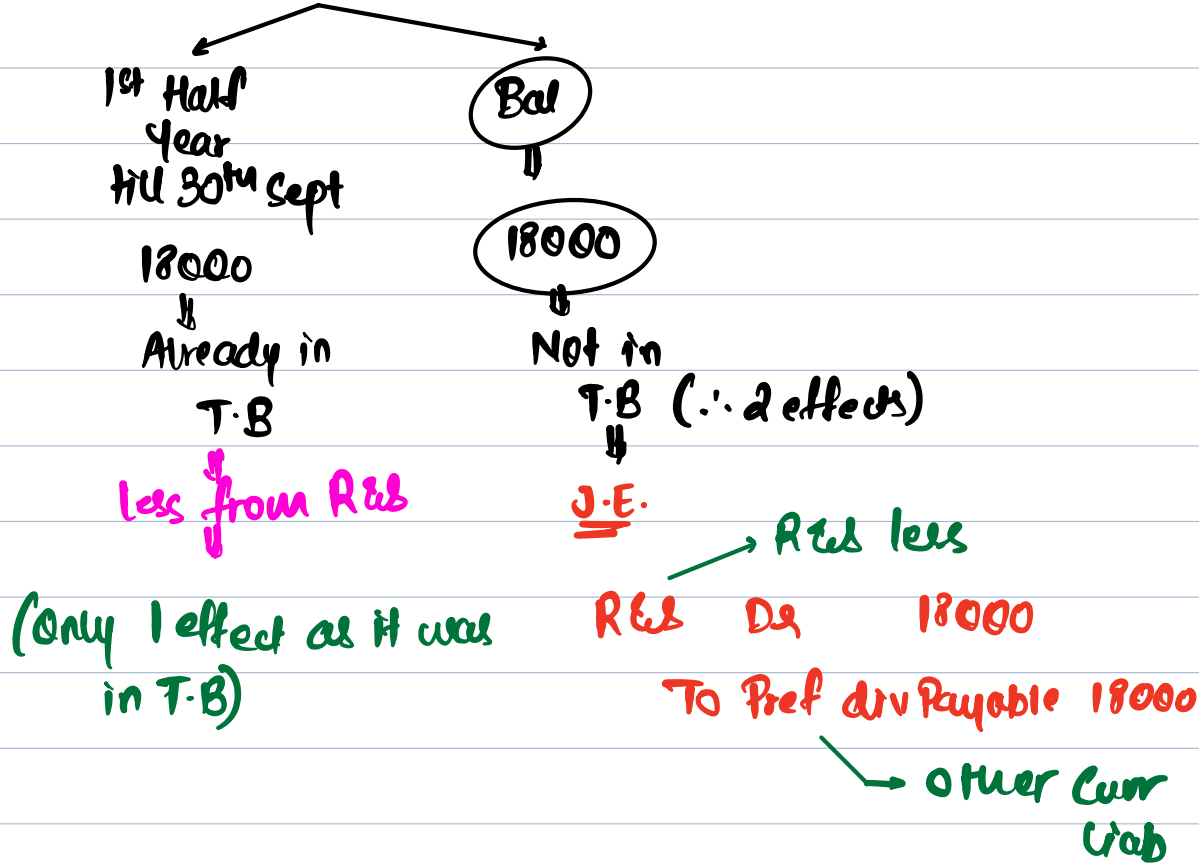 1st Half
year
till 30th Sept
18000
Already in
T.B
less from R&S
(only 1 effect as it was
in T.B)
Bal
18000
Not in
T.B (∴ 2 effects)
J.E.
R&S less
R&S Dr 18000
To Pref div Payable 18000
other Curr
Liab